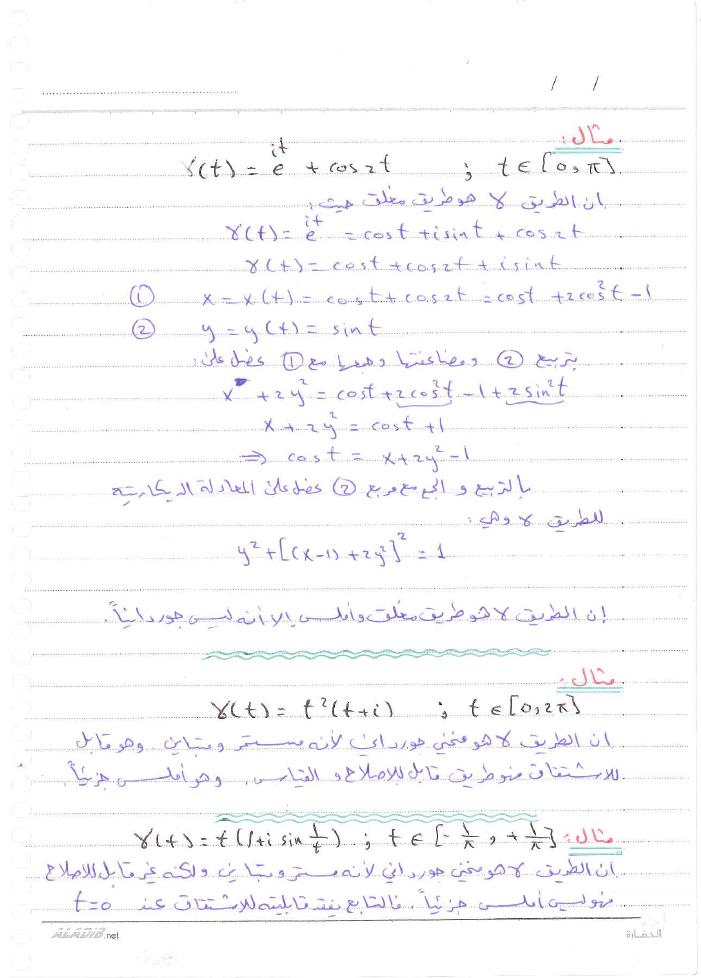 / /
مثال:
γ(t) = e^{it} + cos2t ; t ∈ [0, π]
ان الطريق γ هو طريق مغلق حيث:
γ(t) = e^{it} = cost + isint + cos2t
γ(t) = cost + cos2t + isint
① x = x(t) = cost + cos2t = cost + 2cos²t - 1
② y = y(t) = sint
بتربيع ② ومضاعفتها وجمعها مع ① نحصل على:
x + 2y² = cost + 2cos²t - 1 + 2sin²t
x + 2y² = cost + 1
⇒ cost = x + 2y² - 1
بالتربيع و الجمع مع مربع ② نحصل على المعادلة الديكارتية
للطريق γ وهي:
y² + [(x-1) + 2y²]² = 1
إن الطريق γ هو طريق مغلق وأملس إلا أنه ليس جوردانياً.
مثال:
γ(t) = t²(t+i) ; t ∈ [0, 2π]
ان الطريق γ هو منحني جورداني لأنه مستمر ومتباين وهو قابل
للاشتقاق فهو طريق قابل للإصلاح و القياس. وهو أملس جزئياً.
مثال: γ(t) = t(1 + i sin 1/t) ; t ∈ [-1/π, +1/π]
ان الطريق γ هو منحني جورداني لأنه مستمر ومتباين ولكنه غير قابل للإصلاح
فهو ليس أملس جزئياً. فالتابع يفقد قابليته للاشتقاق عند t=0
ALADIB.net